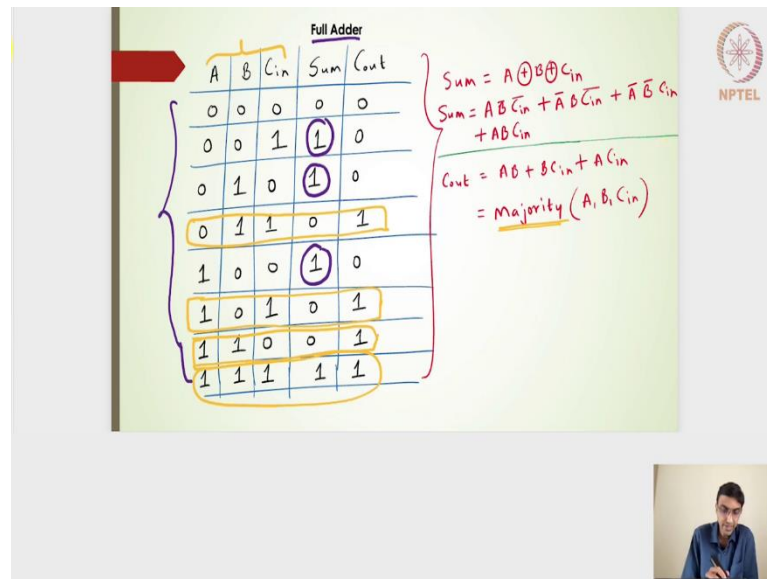 Full Adder
A B Cin Sum Cout
0 0 0 0 0
0 0 1 1 0
0 1 0 1 0
0 1 1 0 1
1 0 0 1 0
1 0 1 0 1
1 1 0 0 1
1 1 1 1 1
Sum = A ⊕ B ⊕ Cin
Sum = A B̅ C̅i̅n̅ + A̅ B C̅i̅n̅ + A̅ B̅ Cin
+ ABCin
Cout = AB + BCin + ACin
= Majority (A, B, Cin)
NPTEL